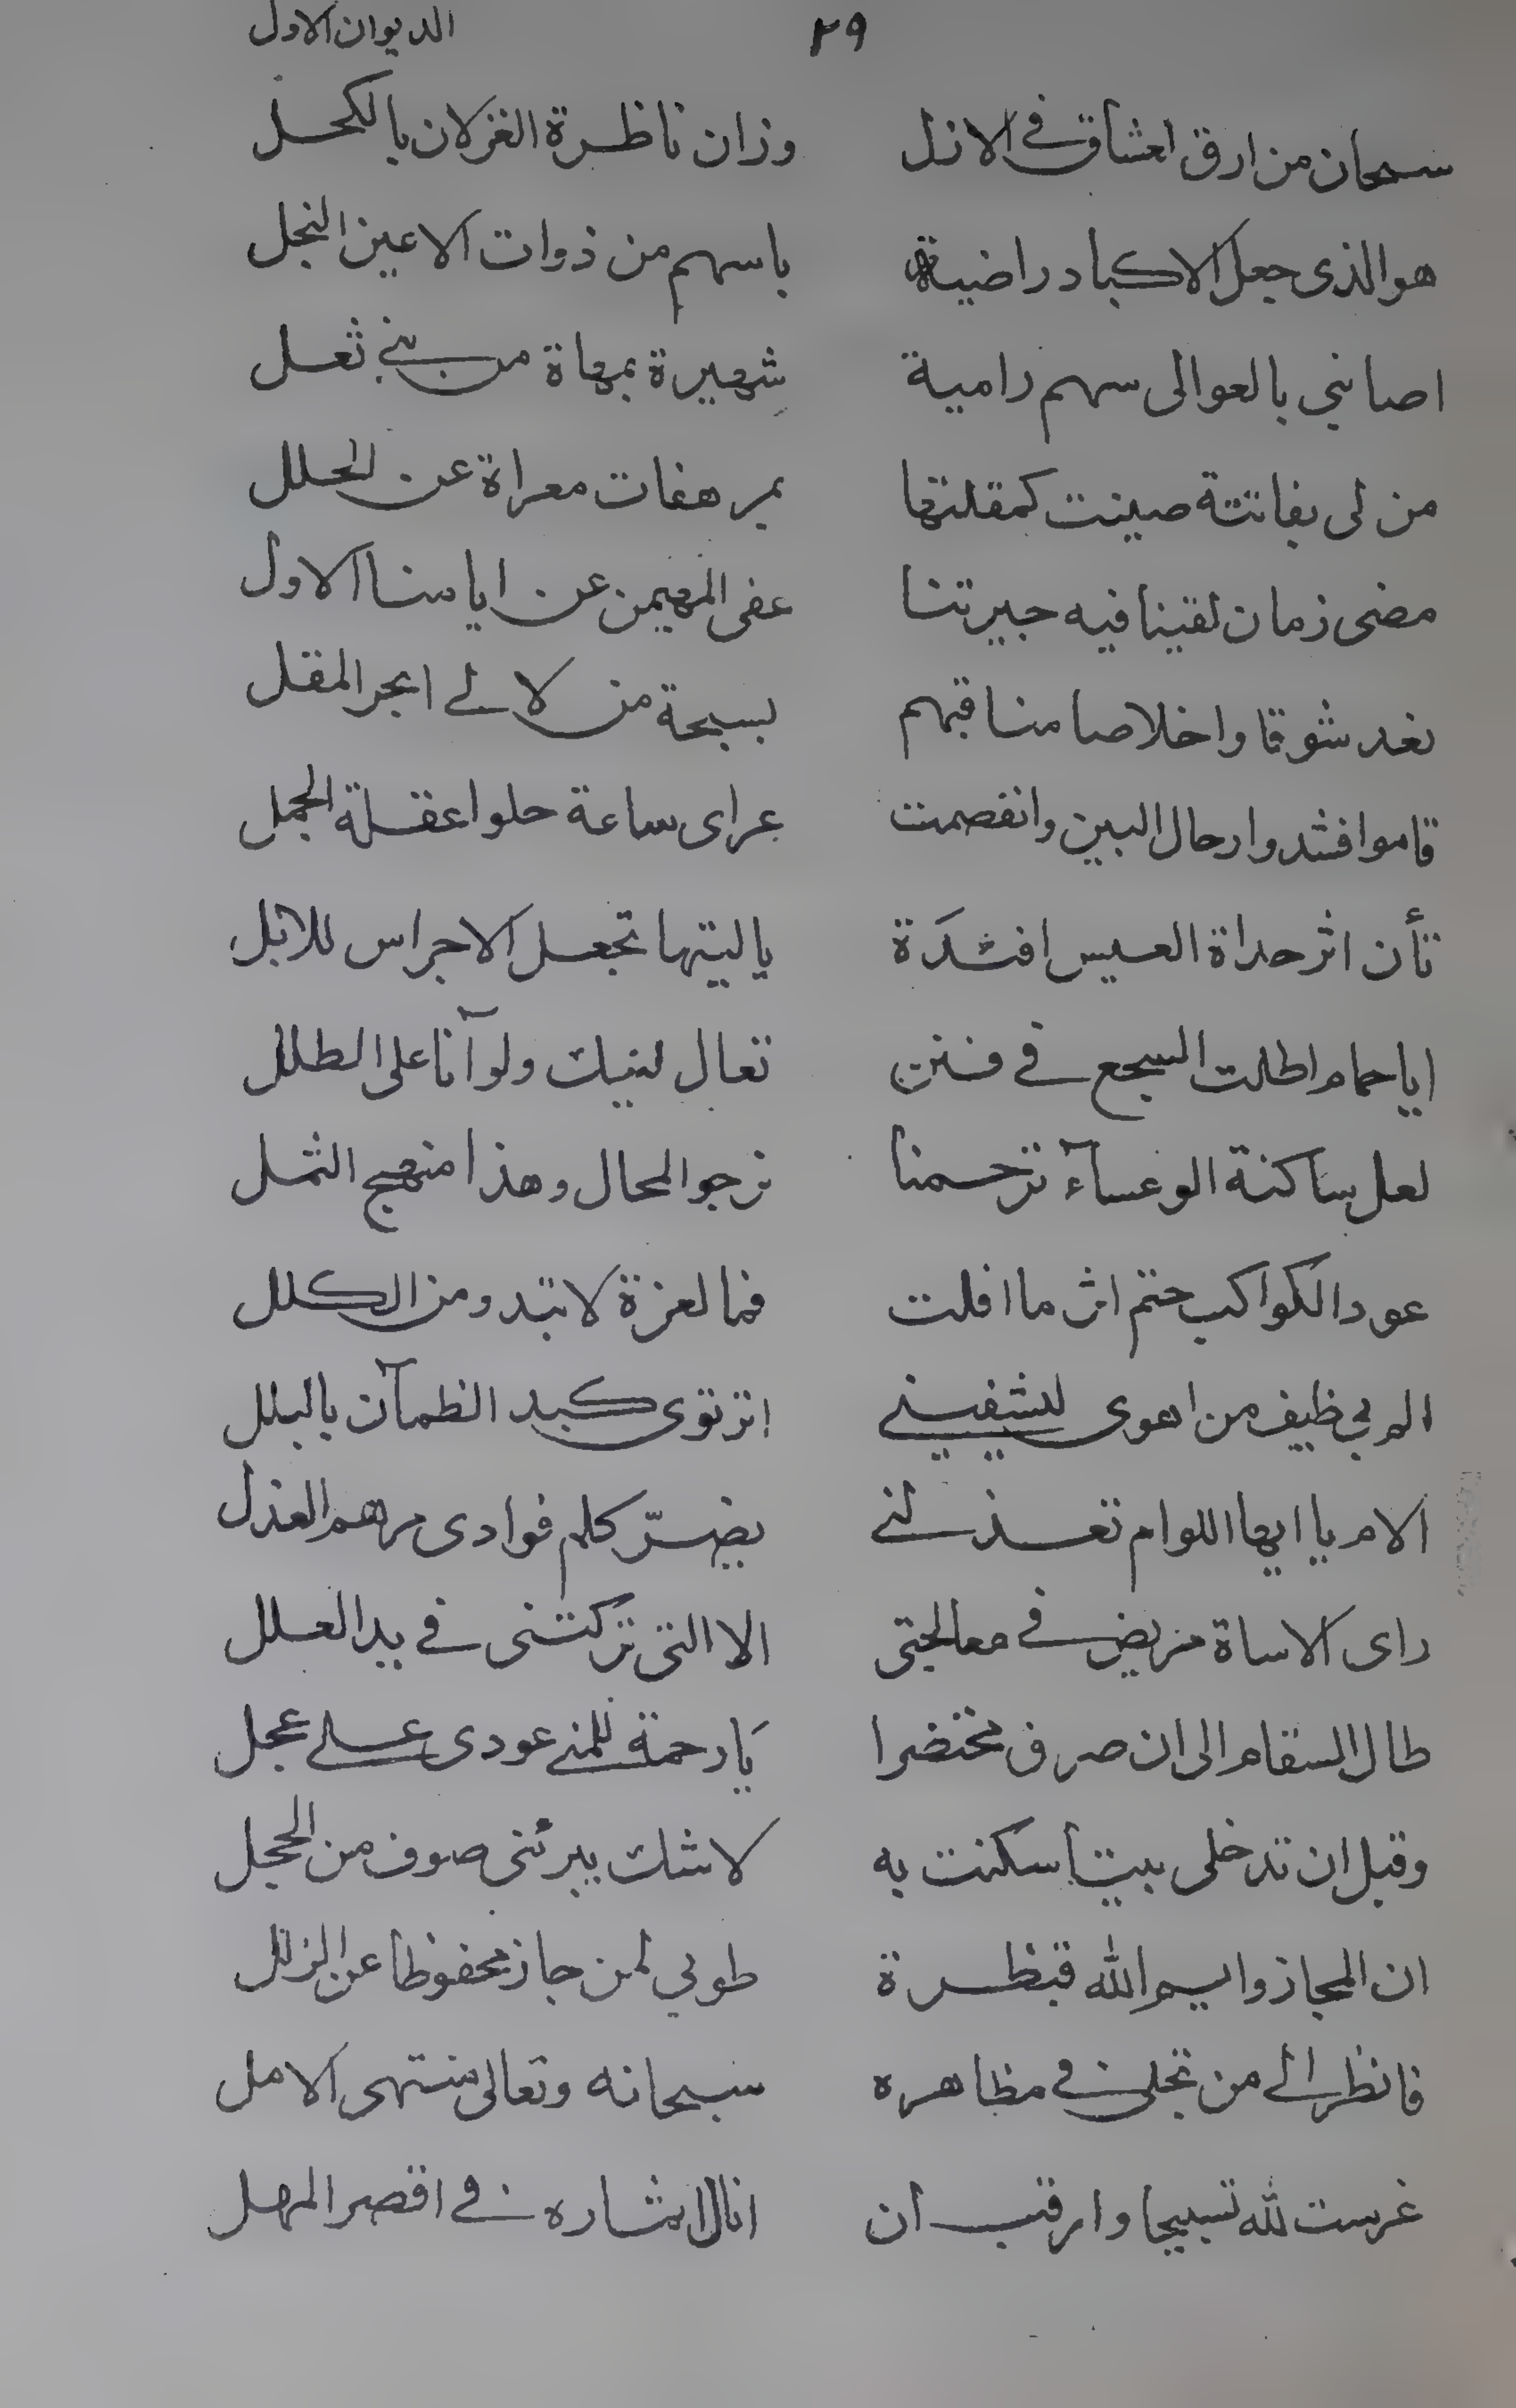 ٢٩ الديوان الاول
سبحان من ارق العشاق فى الازل وزان ناظرة الغزلان بالكحل
هو الذى جعل الاكباد راضية باسهم من ذوات الاعين النجل
اصابنى بالعوالى سهم رامية شهيرة بمهاة من بنى ثعل
من لى بفاتنة صينت كمقلتها بمرهفات معراة عن الحلل
مضى زمان لقينا فيه جيرتنا عفى المهيمن عن ايامنا الاول
نعد شوقا واخلاصا مناقبهم بسبحة من لالى ابحر المقل
قاموا فشدوا رحال البين وانفصمت عراى ساعة حلوا عقلة الجمل
تأن اثر حداة العيس افئدة ياليتها تجعل الاجراس للابل
ايا حمام اطلت السجع فى فنن تعال لنبك ولو آنا على الطلل
لعل ساكنة الوعسآء ترحمنا نرجو المحال وهذا منهج الثمل
عود الكواكب حتم اثر ما افلت فما لعزة لا تبدو من الكلل
الم بى طيف من اهوى ليشفينى اترتوى كبد الظمآن بالبلل
الام يا ايها اللوام تعذلنى يضرّ كلم فوادى مرهم العذل
راى الاساة مريض فى معالجتى الا التى تركتنى فى يد العلل
طال السقام الى ان صرف محتضرا يَا رحمة للمنى عودى على عجل
وقبل ان تدخلى بيتا سكنت به لا شك يبرئنى صوف من الحجل
ان المجاز وايم الله قنطرة طوبى لمن جاز محفوظا عن الزلل
فانظر الى من تجلى فى مظاهره سبحانه وتعالى منتهى الامل
غرست لله تسبيحا وارقب ان انال اثماره فى اقصر المهل